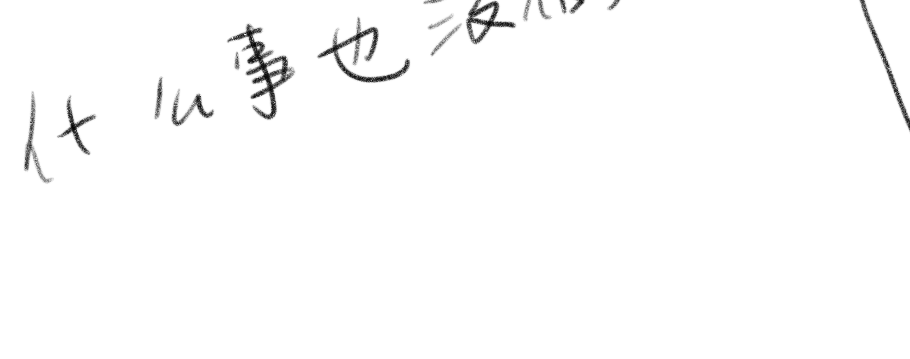 什么事也没